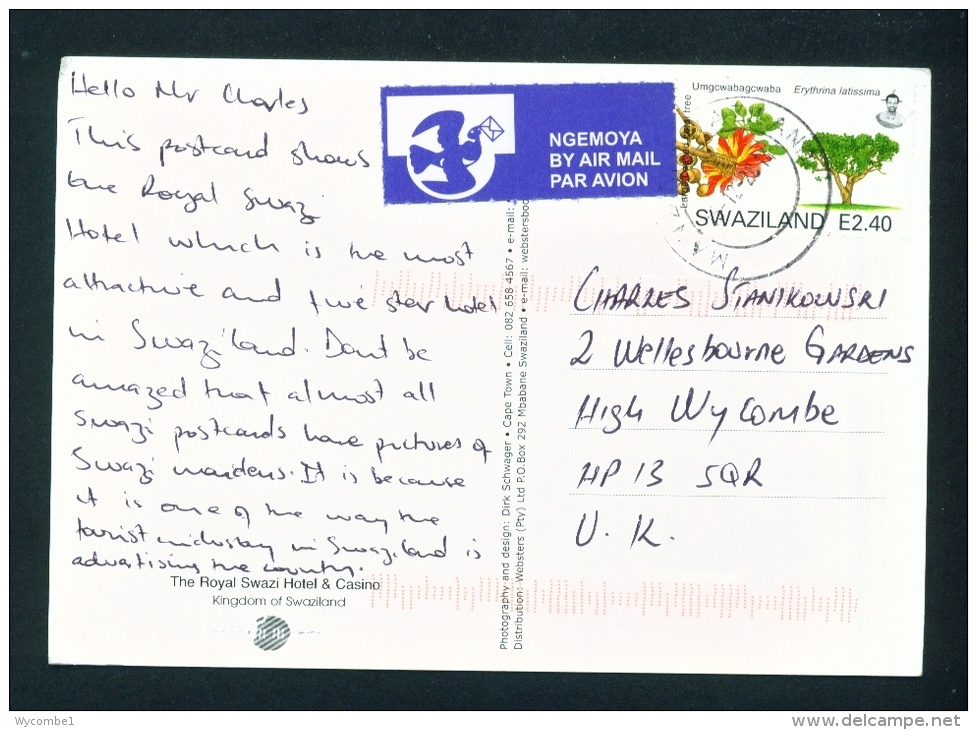 Hello Mr Charles
This postcard shows
the Royal Swazi
Hotel which is the most
attractive and five star hotel
in Swaziland. Dont be
amazed that almost all
Swazi postcards have pictures of
Swazi maidens. It is because
it is one of the way the
tourist industry in Swaziland is
advertising the country.
The Royal Swazi Hotel & Casino
Kingdom of Swaziland
NGEMOYA
BY AIR MAIL
PAR AVION
Umgcwabagcwaba Erythrina latissima
tree
SWAZILAND E2.40
CHARLES STANIKOWSKI
2 Wellesbourne GARDENS
HIGH WYCOMBE
HP13 5QR
U.K.
Photography and design: Dirk Schwager • Cape Town • Cell: 082 658 4567 • e-mail:
Distribution: Websters (Pty) Ltd P.O.Box 292 Mbabane Swaziland • e-mail: webstersboo
Wycombe1
www.delcampe.net